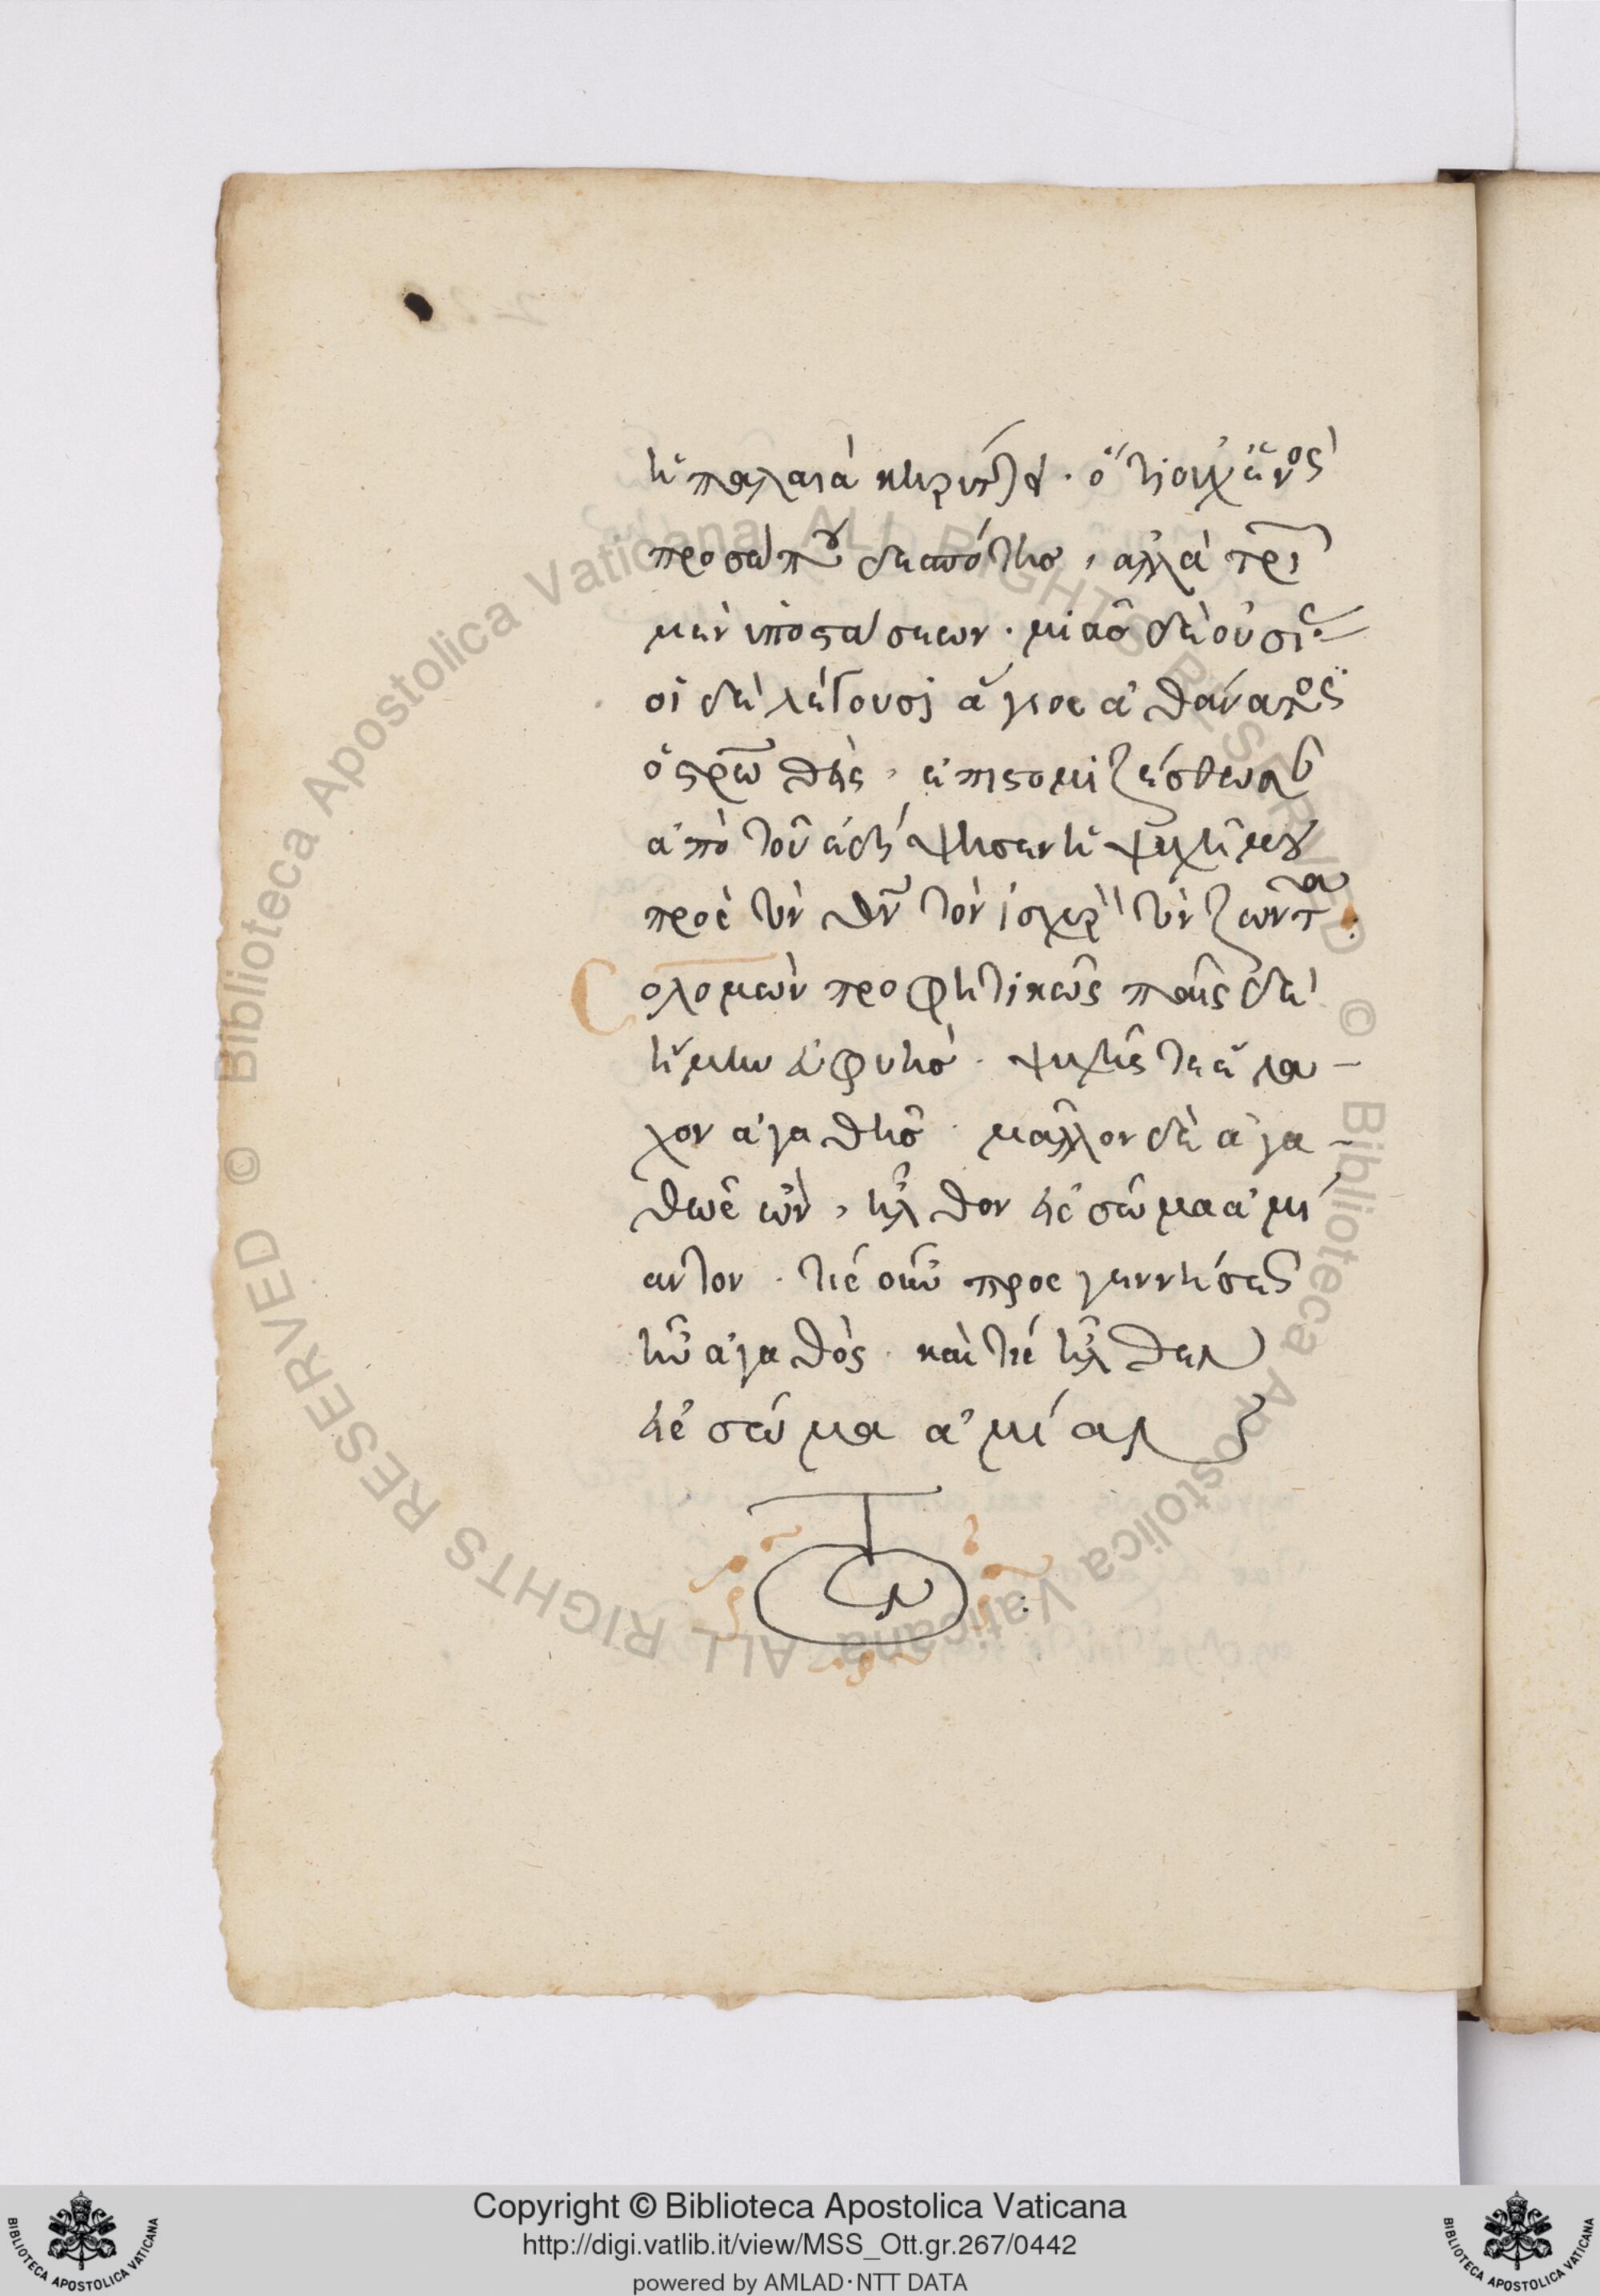 ἡ παλαιὰ κηρύττει · ὅτι οὐχ ἑνὸς
προσώπου δεσπότης, ἀλλὰ τρι
μὲν ὑποστάσεων · μιᾶς δὲ οὐσί
οἱ δὲ λέγουσι ἅγιος ἀθάνατος
ὁ στρωθεὶς, ἐπιστομιζέσθωσαν
ἀπὸ τοῦ ἐδίψησεν ἡ ψυχή μου
πρὸς τὸν θν τὸν ἰσχυρὸν τὸν ζῶντα :
Σολομὼν προφητικῶς παῖς δὲ
ἤμην εὐφυὴς · ψυχῆς τε ἔλα-
χον ἀγαθῆς · μᾶλλον δὲ ἀγα-
θὸς ὢν, ἦλθον εἰς σῶμα ἀμί
αντον · τίς οὖν πρὸς γεννήσεως
ἦν ἀγαθὸς · καὶ τίς ἦλθεν
εἰς σῶμα ἀμίαν
τον :
Copyright © Biblioteca Apostolica Vaticana
http://digi.vatlib.it/view/MSS_Ott.gr.267/0442
powered by AMLAD·NTT DATA
BIBLIOTECA APOSTOLICA VATICANA
BIBLIOTECA APOSTOLICA VATICANA
© Biblioteca Apostolica Vaticana ALL RIGHTS RESERVED
© Biblioteca Apostolica Vaticana ALL RIGHTS RESERVED